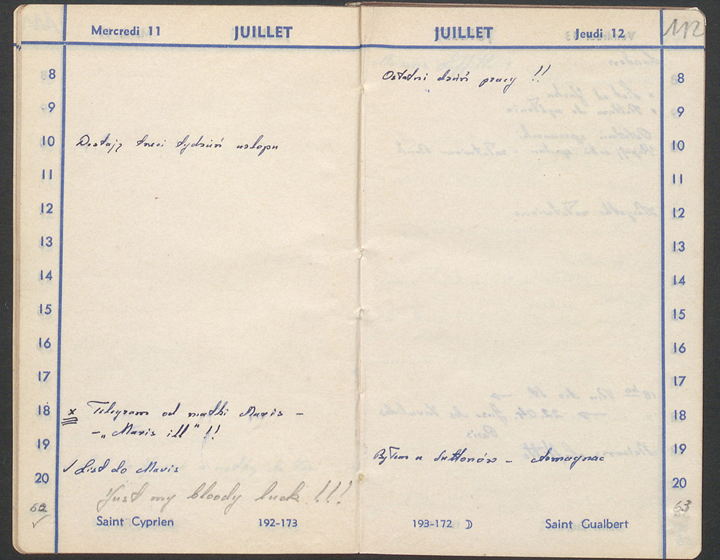 Mercredi 11
JUILLET
8
9
10 Dostaję trzeci tydzień urlopu
11
12
13
14
15
16
17
18 x Telegram od matki Mavis –
– „Mavis ill" !!
19
✓ List do Mavis
20
Just my bloody luck !!!
62 ✓
Saint Cyprien
192-173
JUILLET
Jeudi 12
112
8 Ostatni dzień pracy !!
9
10
11
12
13
14
15
16
17
18
19 Byłem u Suttonów – Armagnac
20
63
193-172
Saint Gualbert